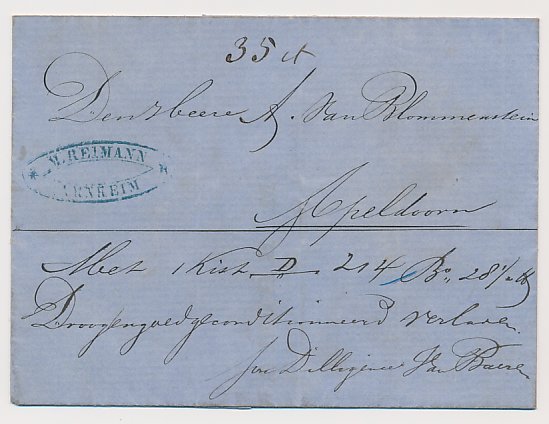 35 ct
Den Heere A. van Blommenstein
M. REIMANN
ARNHEIM
Apeldoorn
Met 1 Kist D 214 Bo 28 1/2 lb
Droog en goed geconditionneerd verladen
per Dilligence Van Baeren